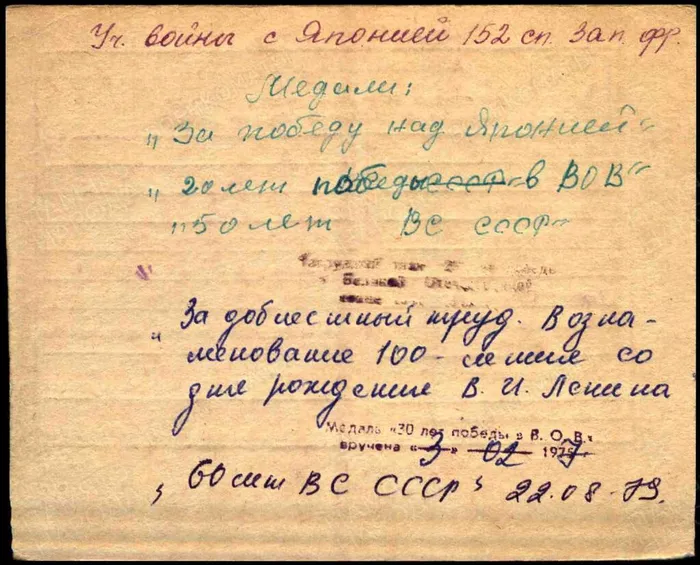 Уч. войны с Японией 152 сп. Зап. фр.
Медали:
„За победу над Японией“
„20 лет победы в ВОВ“
„50 лет ВС СССР“
нагрудный знак
Великой Отечественной
„За доблестный труд. В озна-
менование 100-летия со
дня рождения В. И. Ленина
Медаль «30 лет победы в В. О. В.»
вручена « 3 » 02 197
„60 лет ВС СССР“ 22.08.79.